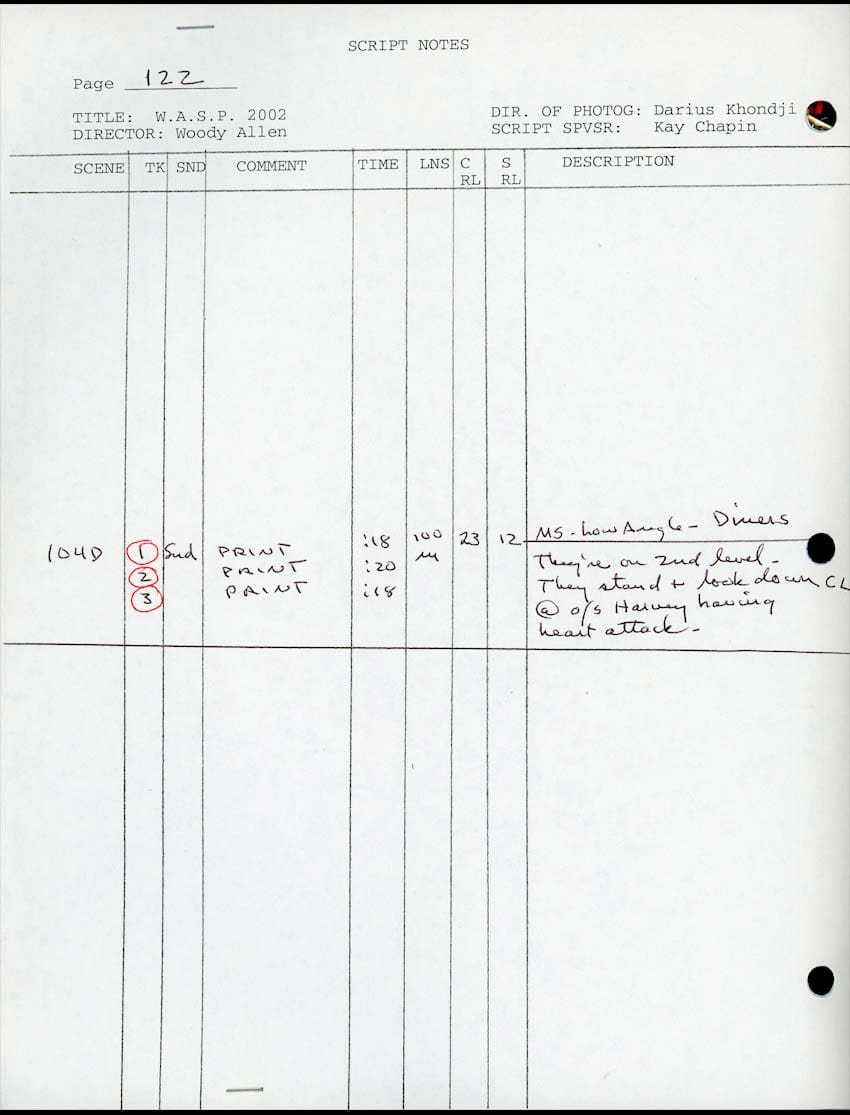 SCRIPT NOTES
Page 122
TITLE: W.A.S.P. 2002
DIR. OF PHOTOG: Darius Khondji
DIRECTOR: Woody Allen
SCRIPT SPVSR: Kay Chapin
SCENE TK SND COMMENT TIME LNS C RL S RL DESCRIPTION
104D 1 Snd PRINT :18 100 23 12 MS. Low Angle - Diners
2 PRINT :20 M They're on 2nd level -
3 PRINT :18 They stand + look down CL
@ o/s Harvey having
heart attack -